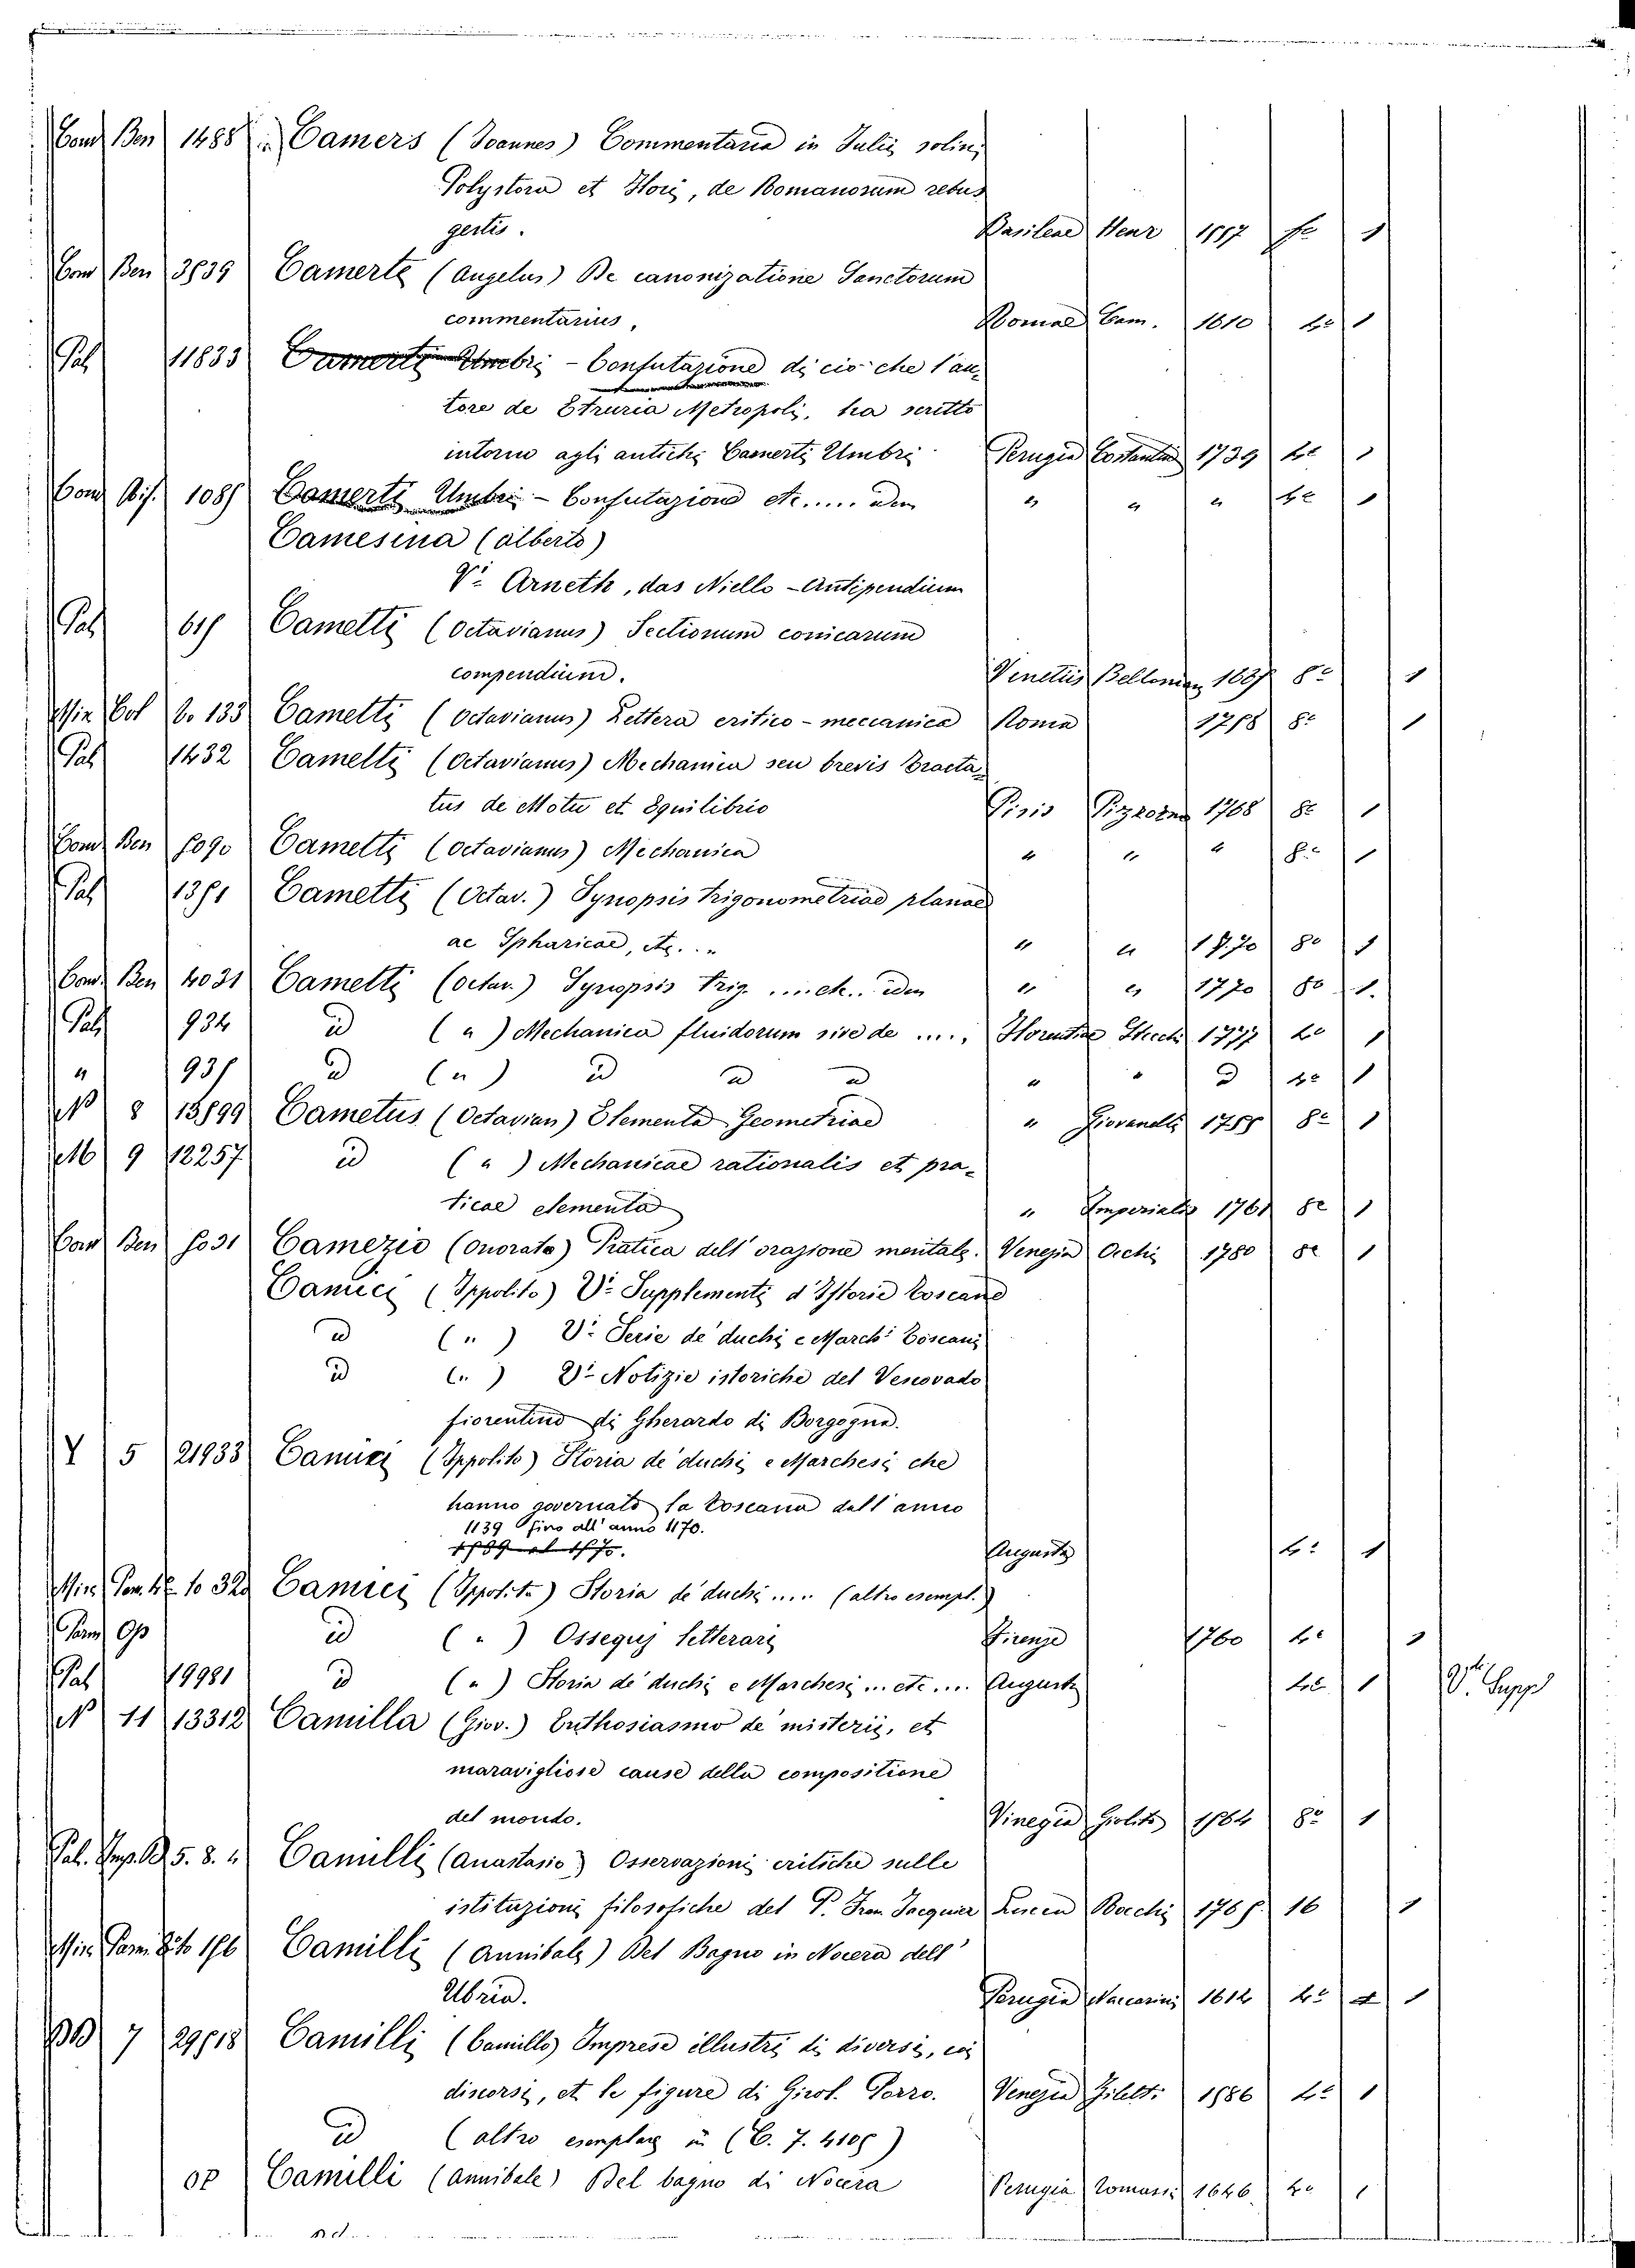 Cond Ben 1488 Camers (Joannes) Commentaria in Julii solini
Polystora et Flori, de Romanorum rebus
gestis. Basileae Henr 1557 fo 1
Cond Ben 3839 Camerte (Angelus) De canonizatione Sanctorum
commentarius, Romae Cam. 1610 4o 1
Pal 11833 Camerti Umbri - Confutazione di ciò che l'au-
tore de Etruria Metropoli, ha scritto
intorno agli antichi Camerti Umbri Perugia Costantini 1739 4o 1
Cond Bif. 1085 Camerti Umbri - Confutazione etc..... idem " " " 4o 1
Camesina (alberto)
Vi Arneth, das Niello-Antipendium
Pal 615 Cametti (Octavianus) Sectionum conicarum
compendium. Venetiis 8o 1
Min Col 6. 133 Cametti (Octavianus) Lettera critico-meccanica Roma 1758 8o 1
Pal 1432 Cametti (Octavianus) Mechanica seu brevis Tracta-
tus de Motu et Equilibrio Pisis Pizzorno 1768 8o 1
Cond Ben 5090 Cametti (Octavianus) Mechanica " " " 8o 1
Pal 1351 Cametti (Octav.) Synopsis trigonometriae planae
ac Spharicae, etc... " " 1770 8o 1
Cond. Ben 4031 Cametti (octav.) Synopsis Trig. .... idem " " 1770 8o 1.
Pal 934 id (") Mechanica fluidorum sive de ..... Florentiae Stecchi 1777 4o 1
" 935 id (") id id id " " id 4o 1
N 8 13899 Cametus (Octavian) Elementa Geometriae " Giovanelli 1755 8o 1
M 9 12257 id (") Mechanicae rationalis et pra-
ticae elementa " Imperialis 1761 8o 1
Cond Ben 5031 Camezio (Onorato) Pratica dell'orazione mentale. Venezia Occhi 1780 8o 1
Camici (Ippolito) Vi Supplementi d'Istorie Toscane
id (") Vi Serie de' duchi e Marchi Toscani
id (") Vi Notizie istoriche del Vescovado
fiorentino di Gherardo di Borgogna.
Y 5 21933 Camici (Ippolito) Storia de' duchi e Marchesi che
hanno governato la Toscana dall'anno
1139 fino all'anno 1170.
Augusta 4o 1
Min. Pam. 4o to 32 Camici (Ippolito) Storia de' duchi .... (altro esempl.)
Pam Op id (") Ossequj letterarj Firenze 1760 4o 1
Pal 19981 id (") Storia de' duchi e Marchesi ... etc.... Augusta 4o 1 Vi Supp
N 11 13312 Camilla (Giov.) Enthosiasmo de' misterii, et
maravigliose cause della compositione
del mondo. Vinegia Giolito 1564 8o 1
Pal. Imp. D 5. 8. " Camilli (Anastasio) Osservazioni critiche sulle
istituzioni filosofiche del P. Fran Jacquier Lucca Rocchi 1765. 16 1
Min Pam. 8o to 156 Camilli (Annibale) Del Bagno in Nocera dell'
Ubria. Perugia Naccarini 1614 4o 1
BB 7 29518 Camilli (Camillo) Imprese illustri di diversi, coi
discorsi, et le figure di Girol. Porro. Venezia Ziletti 1586 4o 1
id (altro esemplare in (C. 7. 4105)
op Camilli (Annibale) Del bagno di Nocera Perugia Tomassi 1646 4o 1